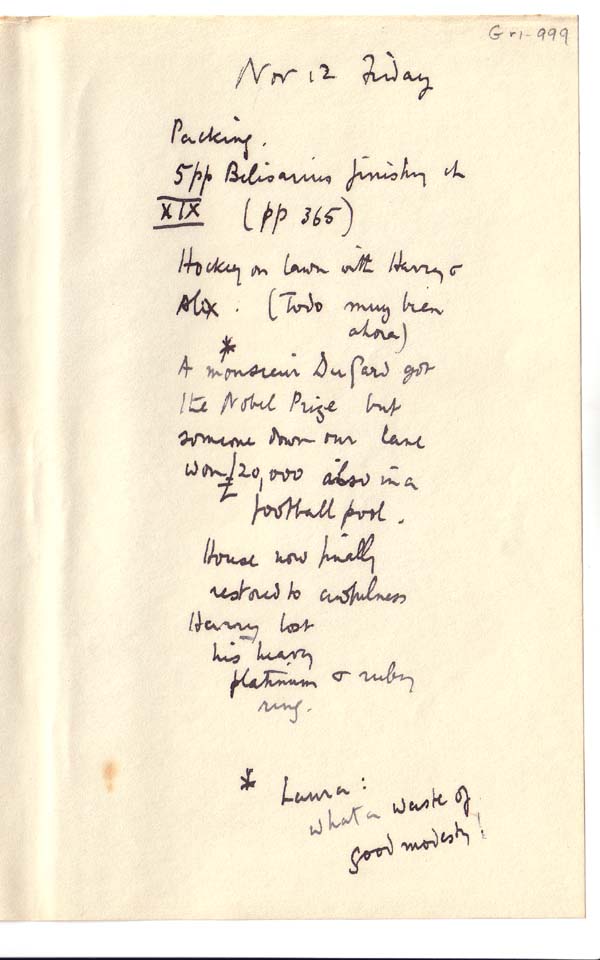 Gri-999
Nov 12 Friday
Packing.
5pp Belisarius finishing ch
XIX (pp 365)
Hockey on lawn with Harry &
Alix. (Todo muy bien
ahora)
*
A monsieur DuGard got
the Nobel Prize but
someone down our lane
won £20,000 also in a
football pool.
House now finally
restored to awfulness
Harry lost
his heavy
platinum & ruby
ring.
* Laura:
what a waste of
good modesty!